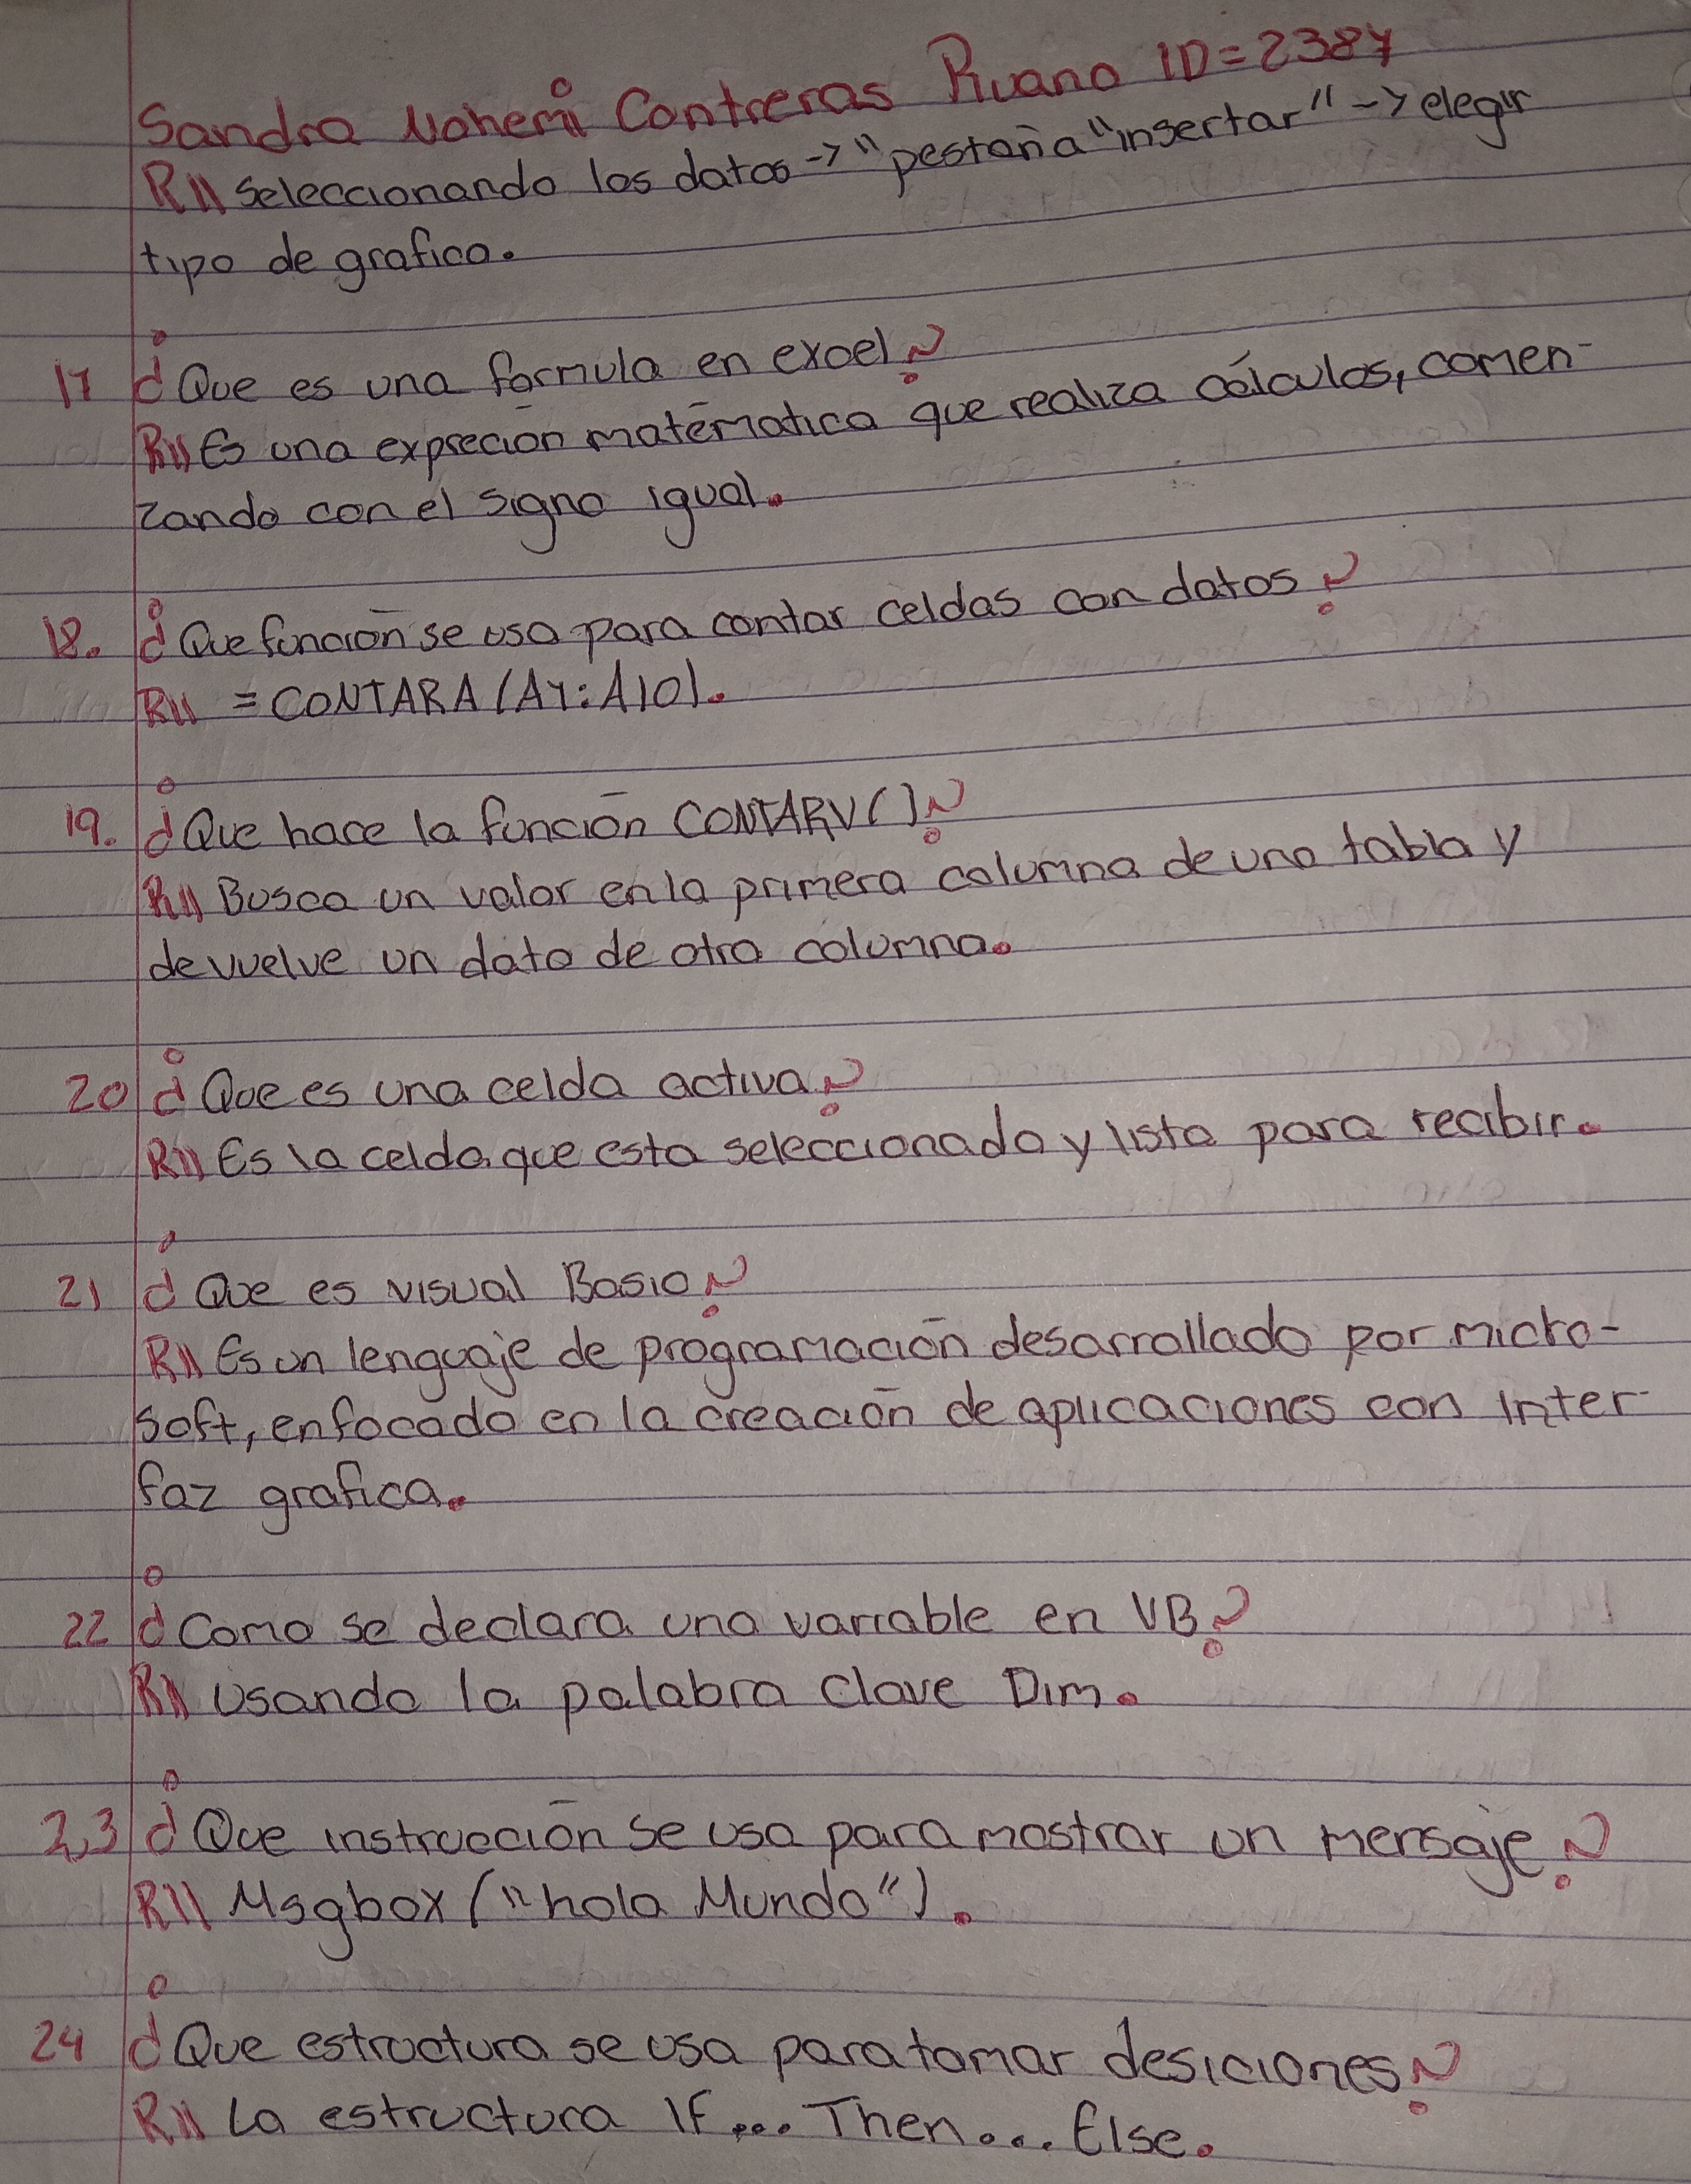 Sandra Nohemi Contreras Ruano ID=2387
R// Seleccionando los datos -> "pestaña "insertar" -> elegir
tipo de grafico.
17 ¿Que es una formula en excel?
R// Es una expreción matématica que realiza cálculos, comen-
zando con el signo igual.
18. ¿Que función se usa para contar celdas con datos?
R// =CONTARA(A1:A10).
19. ¿Que hace la función CONTARV()?
R// Busca un valor en la primera columna de una tabla y
devuelve un dato de otra columna.
20 ¿Que es una celda activa?
R// Es la celda que esta seleccionada y lista para recibir.
21 ¿Que es visual Basic?
R// Es un lenguaje de programación desarrollado por micro-
soft, enfocado en la creación de aplicaciones con inter-
faz grafica.
22 ¿Como se declara una variable en VB?
R// Usando la palabra clave Dim.
23 ¿Que instrucción se usa para mostrar un mensaje?
R// Msgbox ("hola Mundo").
24 ¿Que estructura se usa para tomar desiciones?
R// La estructura If... Then... Else.